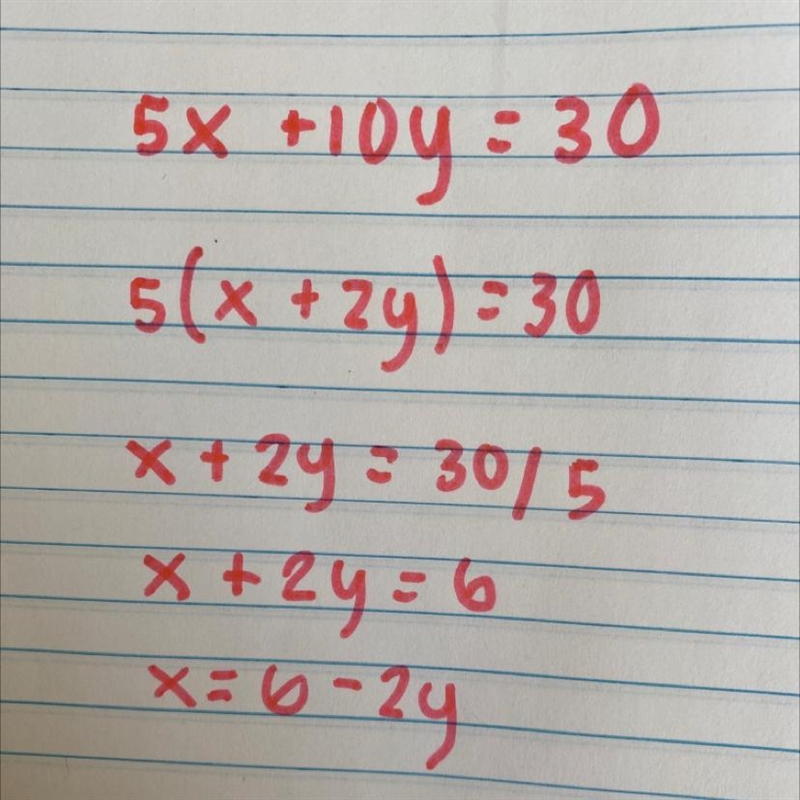 5x +10y = 30
5(x + 2y) = 30
x + 2y = 30/5
x + 2y = 6
x = 6 - 2y